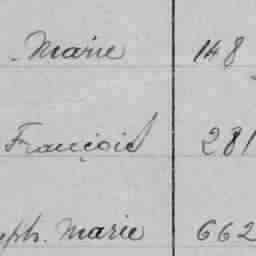 Marie 148
François 281
ph. Marie 662